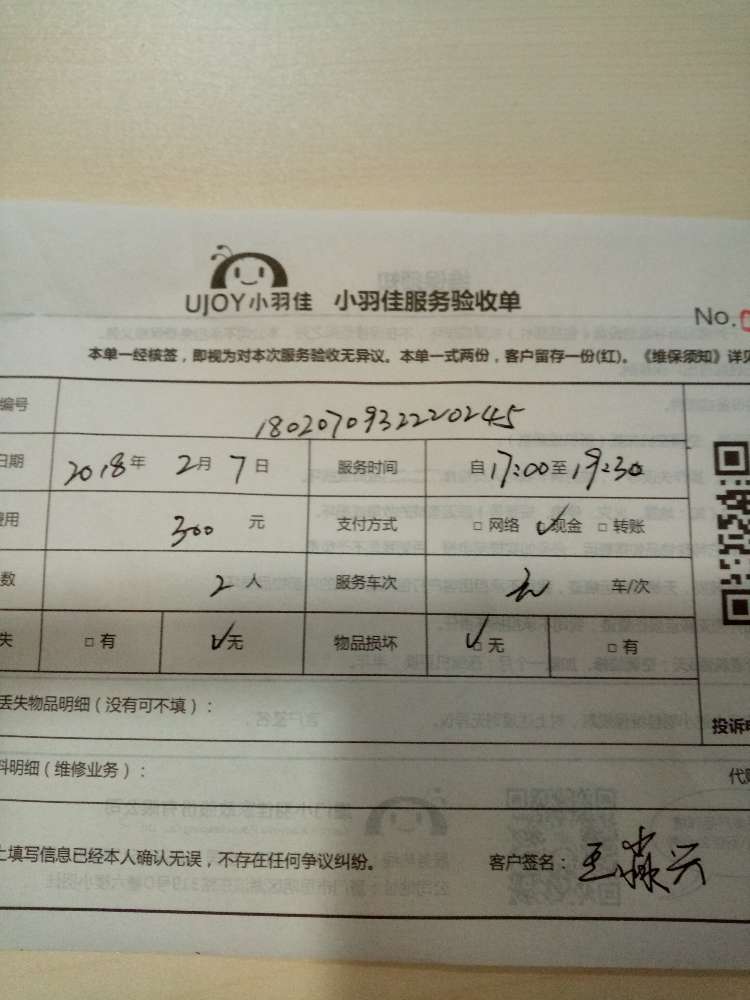 UJOY小羽佳 小羽佳服务验收单
No.
本单一经核签，即视为对本次服务验收无异议。本单一式两份，客户留存一份(红)。《维保须知》详见
编号 1802070932220245
日期 2018年 2月 7日 服务时间 自17:00至19:30
费用 300 元 支付方式 □ 网络 ☑ 现金 □ 转账
数 2人 服务车次 车/次
失 □ 有 ☑ 无 物品损坏 ☑ 无 □ 有
丢失物品明细（没有可不填）：
投诉电
料明细（维修业务）：
代
上填写信息已经本人确认无误，不存在任何争议纠纷。 客户签名：王淼兴